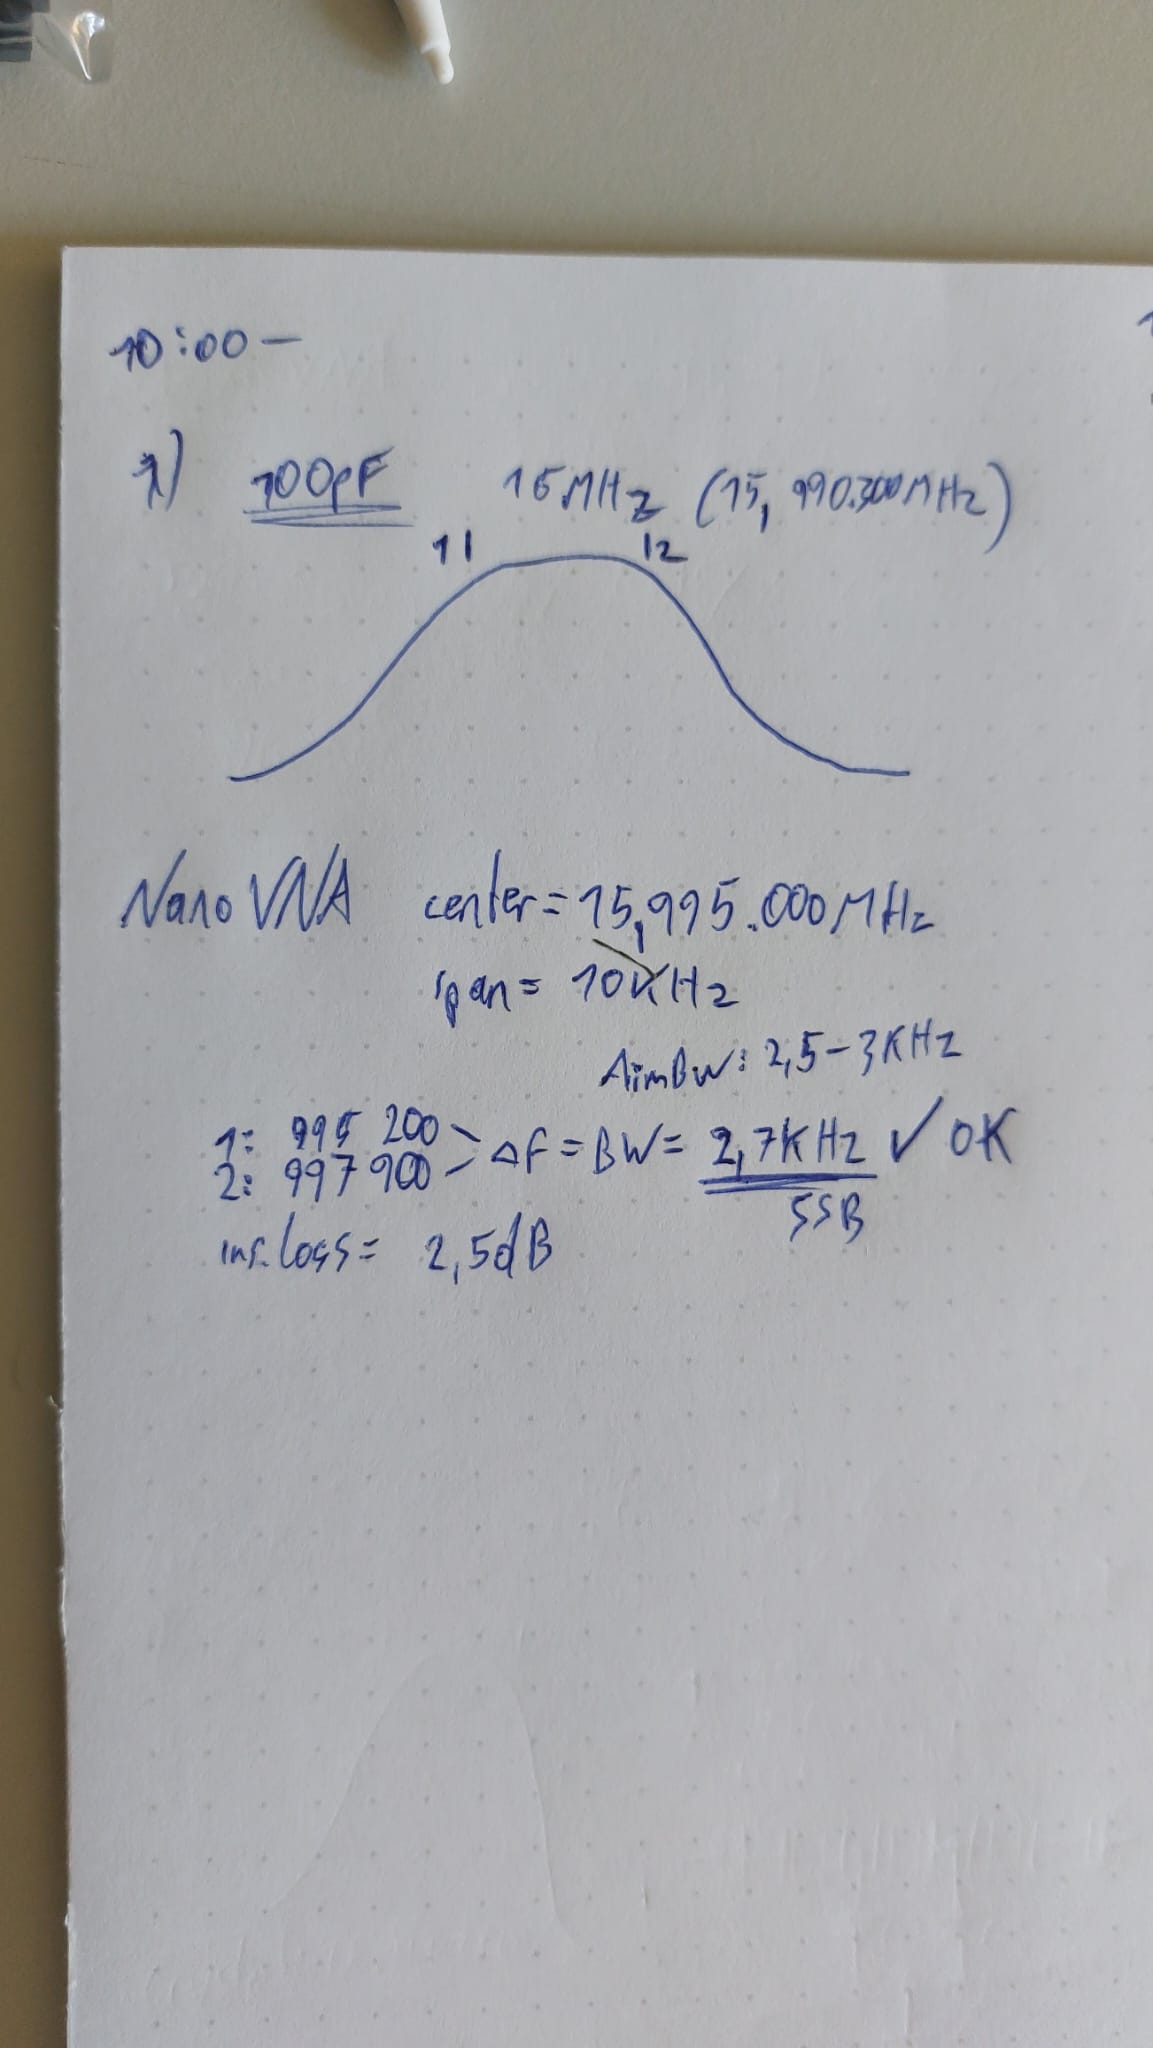 10:00 –
1) 100pF 16MHz (15,990.300MHz)
1| |2
NanoVNA center = 15,995.000MHz
span = 10KHz
AimBW: 2,5–3KHz
1: 995 200
2: 997 900 > ΔF = BW = 2,7KHz ✓ OK
SSB
ins.loss = 2,5dB